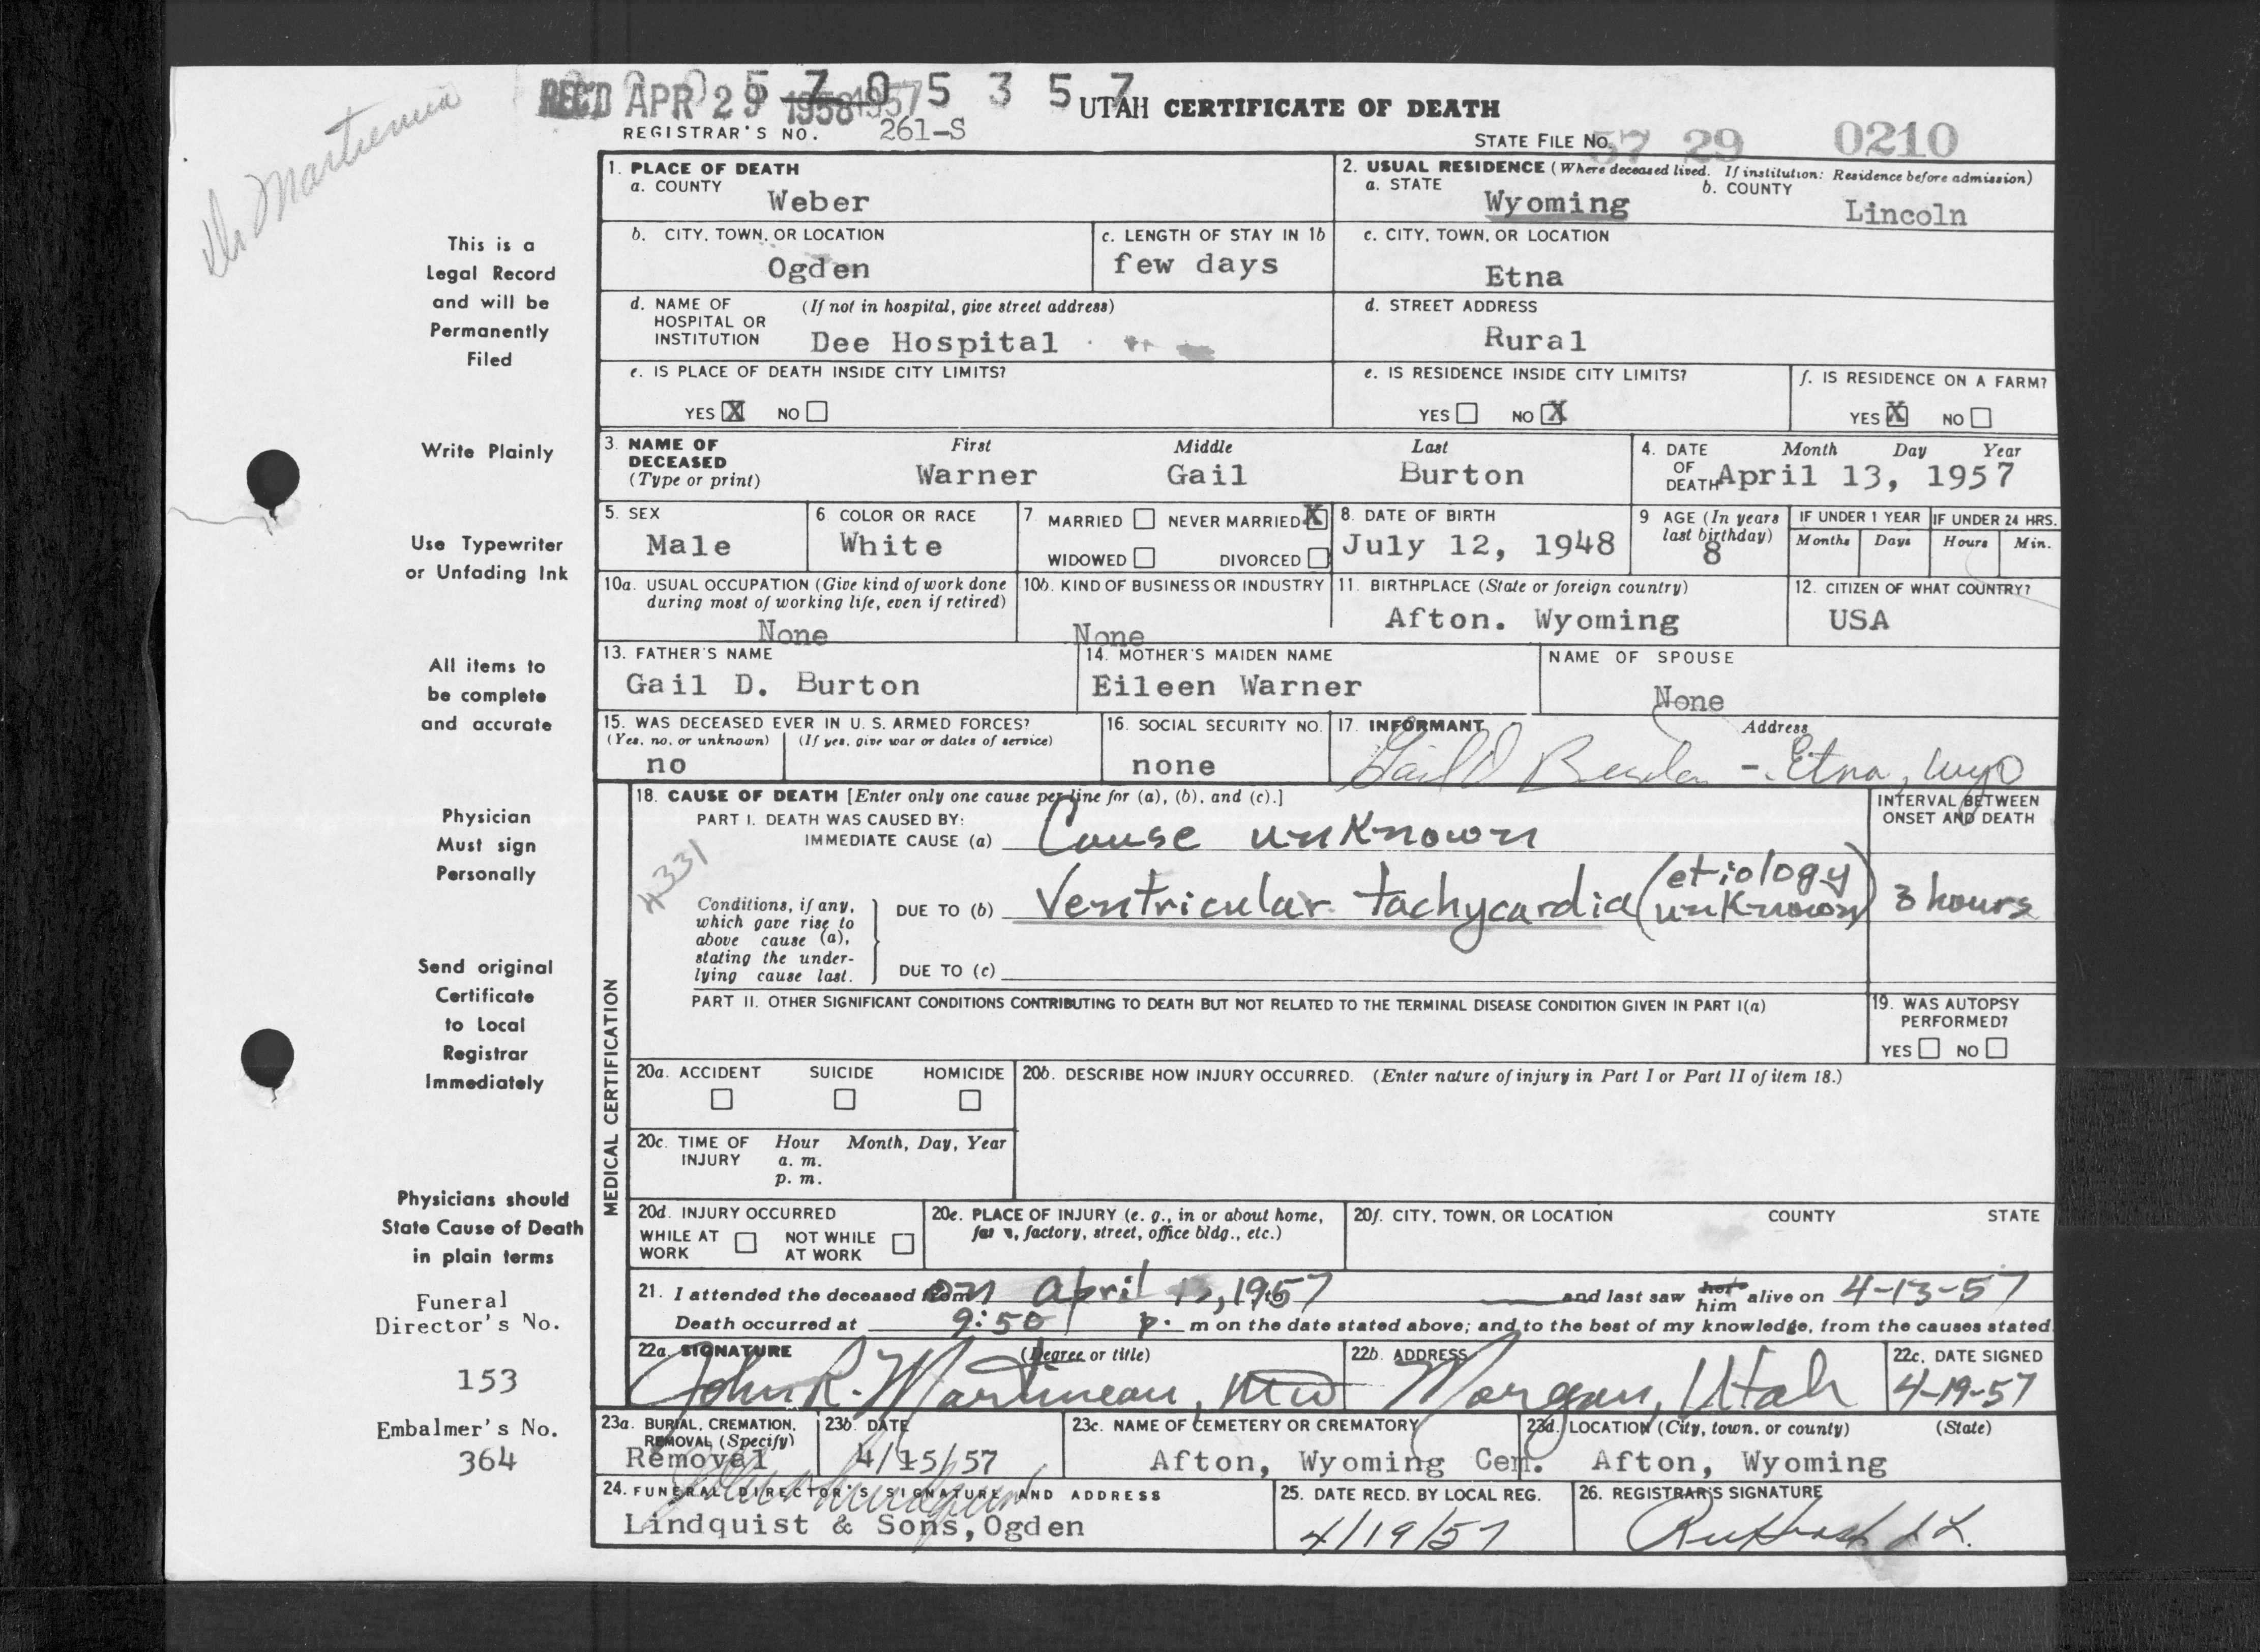 Dr Martineau
REC'D APR 29 1958 1957
5 7 0 5 3 5 7
UTAH CERTIFICATE OF DEATH
REGISTRAR'S NO. 261-S
STATE FILE NO. 57 29 0210
This is a
Legal Record
and will be
Permanently
Filed
Write Plainly
Use Typewriter
or Unfading Ink
All items to
be complete
and accurate
Physician
Must sign
Personally
Send original
Certificate
to Local
Registrar
Immediately
Physicians should
State Cause of Death
in plain terms
Funeral
Director's No.
153
Embalmer's No.
364
1. PLACE OF DEATH
a. COUNTY
Weber
2. USUAL RESIDENCE (Where deceased lived. If institution: Residence before admission)
a. STATE
Wyoming
b. COUNTY
Lincoln
b. CITY, TOWN, OR LOCATION
Ogden
c. LENGTH OF STAY IN 1b
few days
c. CITY, TOWN, OR LOCATION
Etna
d. NAME OF (If not in hospital, give street address)
HOSPITAL OR
INSTITUTION Dee Hospital
d. STREET ADDRESS
Rural
e. IS PLACE OF DEATH INSIDE CITY LIMITS?
YES X NO
e. IS RESIDENCE INSIDE CITY LIMITS?
YES NO X
f. IS RESIDENCE ON A FARM?
YES X NO
3. NAME OF First Middle Last
DECEASED
(Type or print) Warner Gail Burton
4. DATE Month Day Year
OF
DEATH April 13, 1957
5. SEX
Male
6. COLOR OR RACE
White
7 MARRIED NEVER MARRIED X
WIDOWED DIVORCED
8. DATE OF BIRTH
July 12, 1948
9 AGE (In years
last birthday)
8
IF UNDER 1 YEAR
Months Days
IF UNDER 24 HRS.
Hours Min.
10a. USUAL OCCUPATION (Give kind of work done
during most of working life, even if retired)
None
10b. KIND OF BUSINESS OR INDUSTRY
None
11. BIRTHPLACE (State or foreign country)
Afton. Wyoming
12. CITIZEN OF WHAT COUNTRY?
USA
13. FATHER'S NAME
Gail D. Burton
14. MOTHER'S MAIDEN NAME
Eileen Warner
NAME OF SPOUSE
None
15. WAS DECEASED EVER IN U. S. ARMED FORCES?
(Yes, no, or unknown) (If yes, give war or dates of service)
no
16. SOCIAL SECURITY NO.
none
17. INFORMANT Address
Gail D Burton - Etna, Wyo
MEDICAL CERTIFICATION
18. CAUSE OF DEATH [Enter only one cause per line for (a), (b), and (c).]
INTERVAL BETWEEN
ONSET AND DEATH
PART I. DEATH WAS CAUSED BY:
IMMEDIATE CAUSE (a) Cause unknown
4331
Conditions, if any,
which gave rise to
above cause (a),
stating the under-
lying cause last.
DUE TO (b) Ventricular tachycardia (etiology unknown) 3 hours
DUE TO (c)
PART II. OTHER SIGNIFICANT CONDITIONS CONTRIBUTING TO DEATH BUT NOT RELATED TO THE TERMINAL DISEASE CONDITION GIVEN IN PART I(a)
19. WAS AUTOPSY
PERFORMED?
YES NO
20a. ACCIDENT SUICIDE HOMICIDE
20b. DESCRIBE HOW INJURY OCCURRED. (Enter nature of injury in Part I or Part II of item 18.)
20c. TIME OF Hour Month, Day, Year
INJURY a. m.
p. m.
20d. INJURY OCCURRED
WHILE AT WORK NOT WHILE AT WORK
20e. PLACE OF INJURY (e. g., in or about home,
farm, factory, street, office bldg., etc.)
20f. CITY, TOWN, OR LOCATION COUNTY STATE
21. I attended the deceased from on April 1957 to and last saw her him alive on 4-13-57
Death occurred at 9:50 p. m on the date stated above; and to the best of my knowledge, from the causes stated
22a. SIGNATURE (Degree or title)
John R. Martineau, MD
22b. ADDRESS
Morgan, Utah
22c. DATE SIGNED
4-19-57
23a. BURIAL, CREMATION,
REMOVAL (Specify)
Removal
23b. DATE
4/15/57
23c. NAME OF CEMETERY OR CREMATORY
Afton, Wyoming Cem.
23d. LOCATION (City, town, or county) (State)
Afton, Wyoming
24. FUNERAL DIRECTOR'S SIGNATURE AND ADDRESS
Lindquist & Sons, Ogden
25. DATE RECD. BY LOCAL REG.
4/19/57
26. REGISTRAR'S SIGNATURE